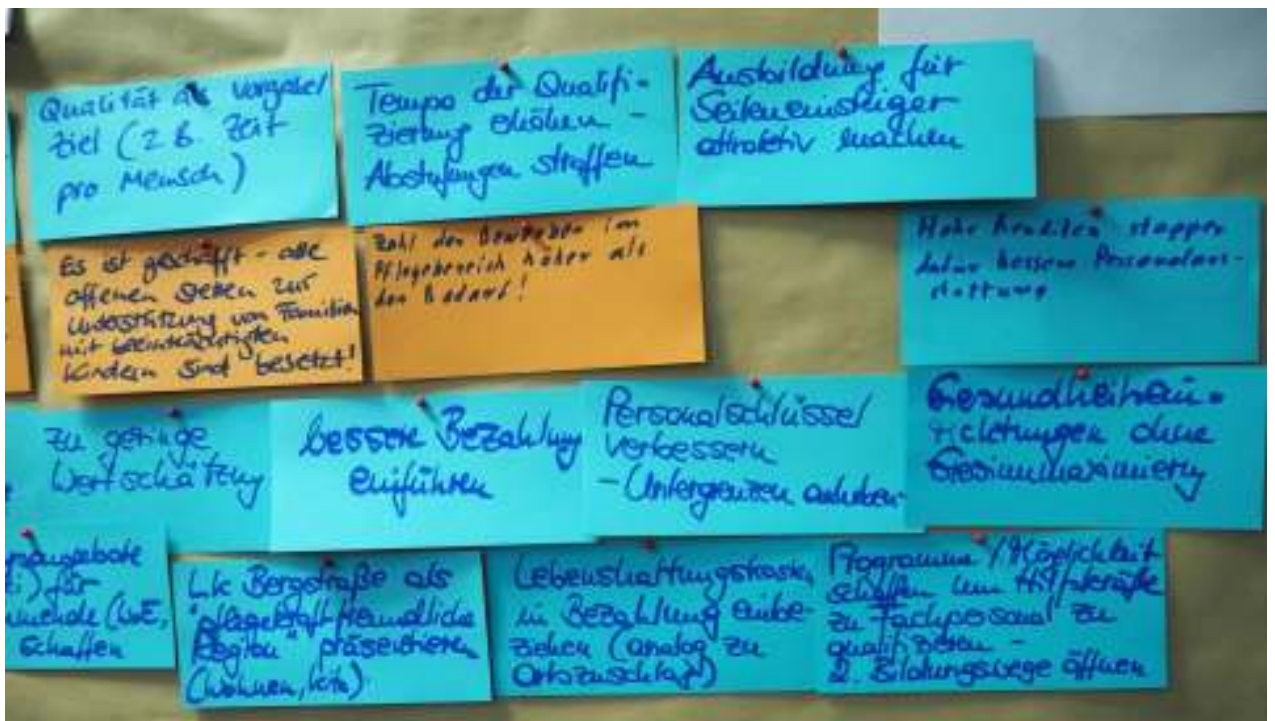 Qualität als Vorgabe/
Ziel (z.B. Zeit
pro Mensch)
Tempo der Qualifi-
zierung erhöhen -
Abstufungen straffen
Ausbildung für
Seiteneinsteiger
attraktiv machen
Es ist geschafft - alle
offenen Stellen zur
Unterstützung von Familien
mit beeinträchtigten
Kindern sind besetzt!
Zahl der Bewerber im
Pflegebereich höher als
der Bedarf!
Hohe Renditen stoppen
dafür bessere Personalaus-
stattung
zu geringe
Wertschätzung
bessere Bezahlung
einführen
Personalschlüssel
verbessern
- Untergrenzen anheben -
Gesundheitsein-
richtungen ohne
Gewinnmaximierung
angebote
für
schaffen
Lk Bergstraße als
"pflegekraftfreundliche
Region" präsentieren
(Wohnen, Kita)
Lebenshaltungskosten
in Bezahlung einbe-
ziehen (analog zu
Ortszuschlag)
Programme / Möglichkeit
schaffen um Hilfskräfte
zu Fachpersonal zu
qualifizieren -
2. Bildungswege öffnen